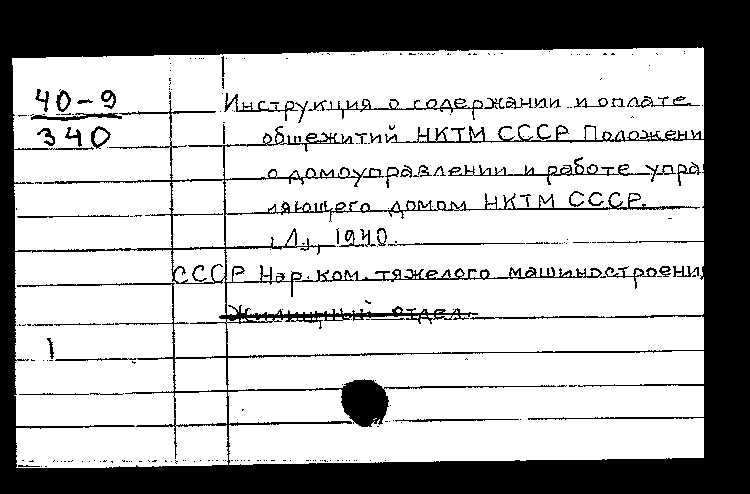 40-9
340
Инструкция о содержании и оплате
общежитий НКТМ СССР Положени
о домоуправлении и работе упра
ляющего домом НКТМ СССР.
Л., 1940.
СССР Нар. ком. тяжелого машиностроени
Жилищный отдел.
1